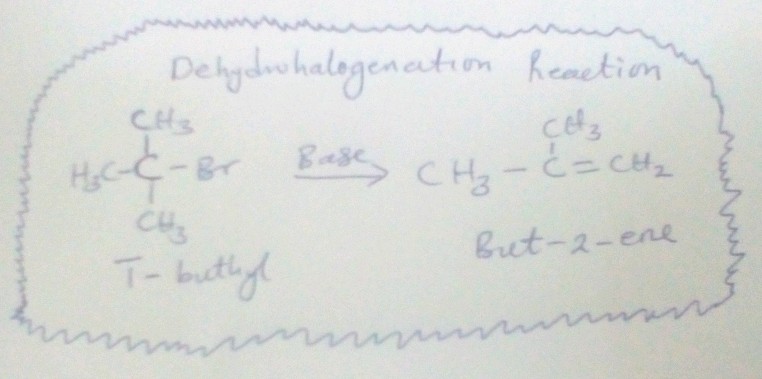 Dehydrohalogenation Reaction
CH3
H3C-C-Br
CH3
T-buthyl
Base
CH3
CH3-C=CH2
But-2-ene